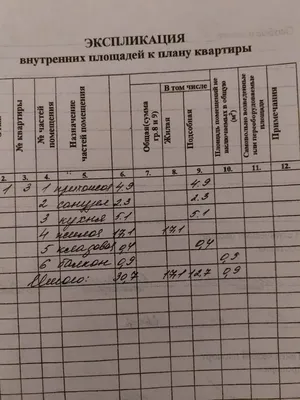 ЭКСПЛИКАЦИЯ
внутренних площадей к плану квартиры
№ квартиры
№ частей помещения
Назначение частей помещения
Общая(сумма гр.8 и 9)
В том числе
Жилая
Подсобная
Площадь помещений не включаемых в общую (м²)
Самовольно возведенные или переоборудованные площади
Примечания
2. 3. 4. 5. 6. 7. 8. 9. 10. 11. 12.
1 3 1 прихожая 4.9 4.9
2 санузел 2.3 2.3
3 кухня 5.1 5.1
4 жилая 17.1 17.1
5 кладовая 0,4 0,4
6 балкон 0,9 0,9
Итого: 30,7 17,1 12,7 0,9